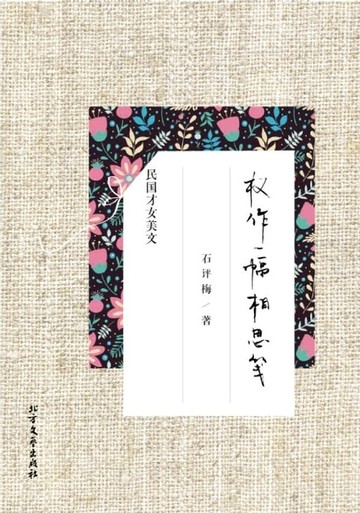 权作一幅相思笺
石评梅／著
民国才女美文
北方文艺出版社